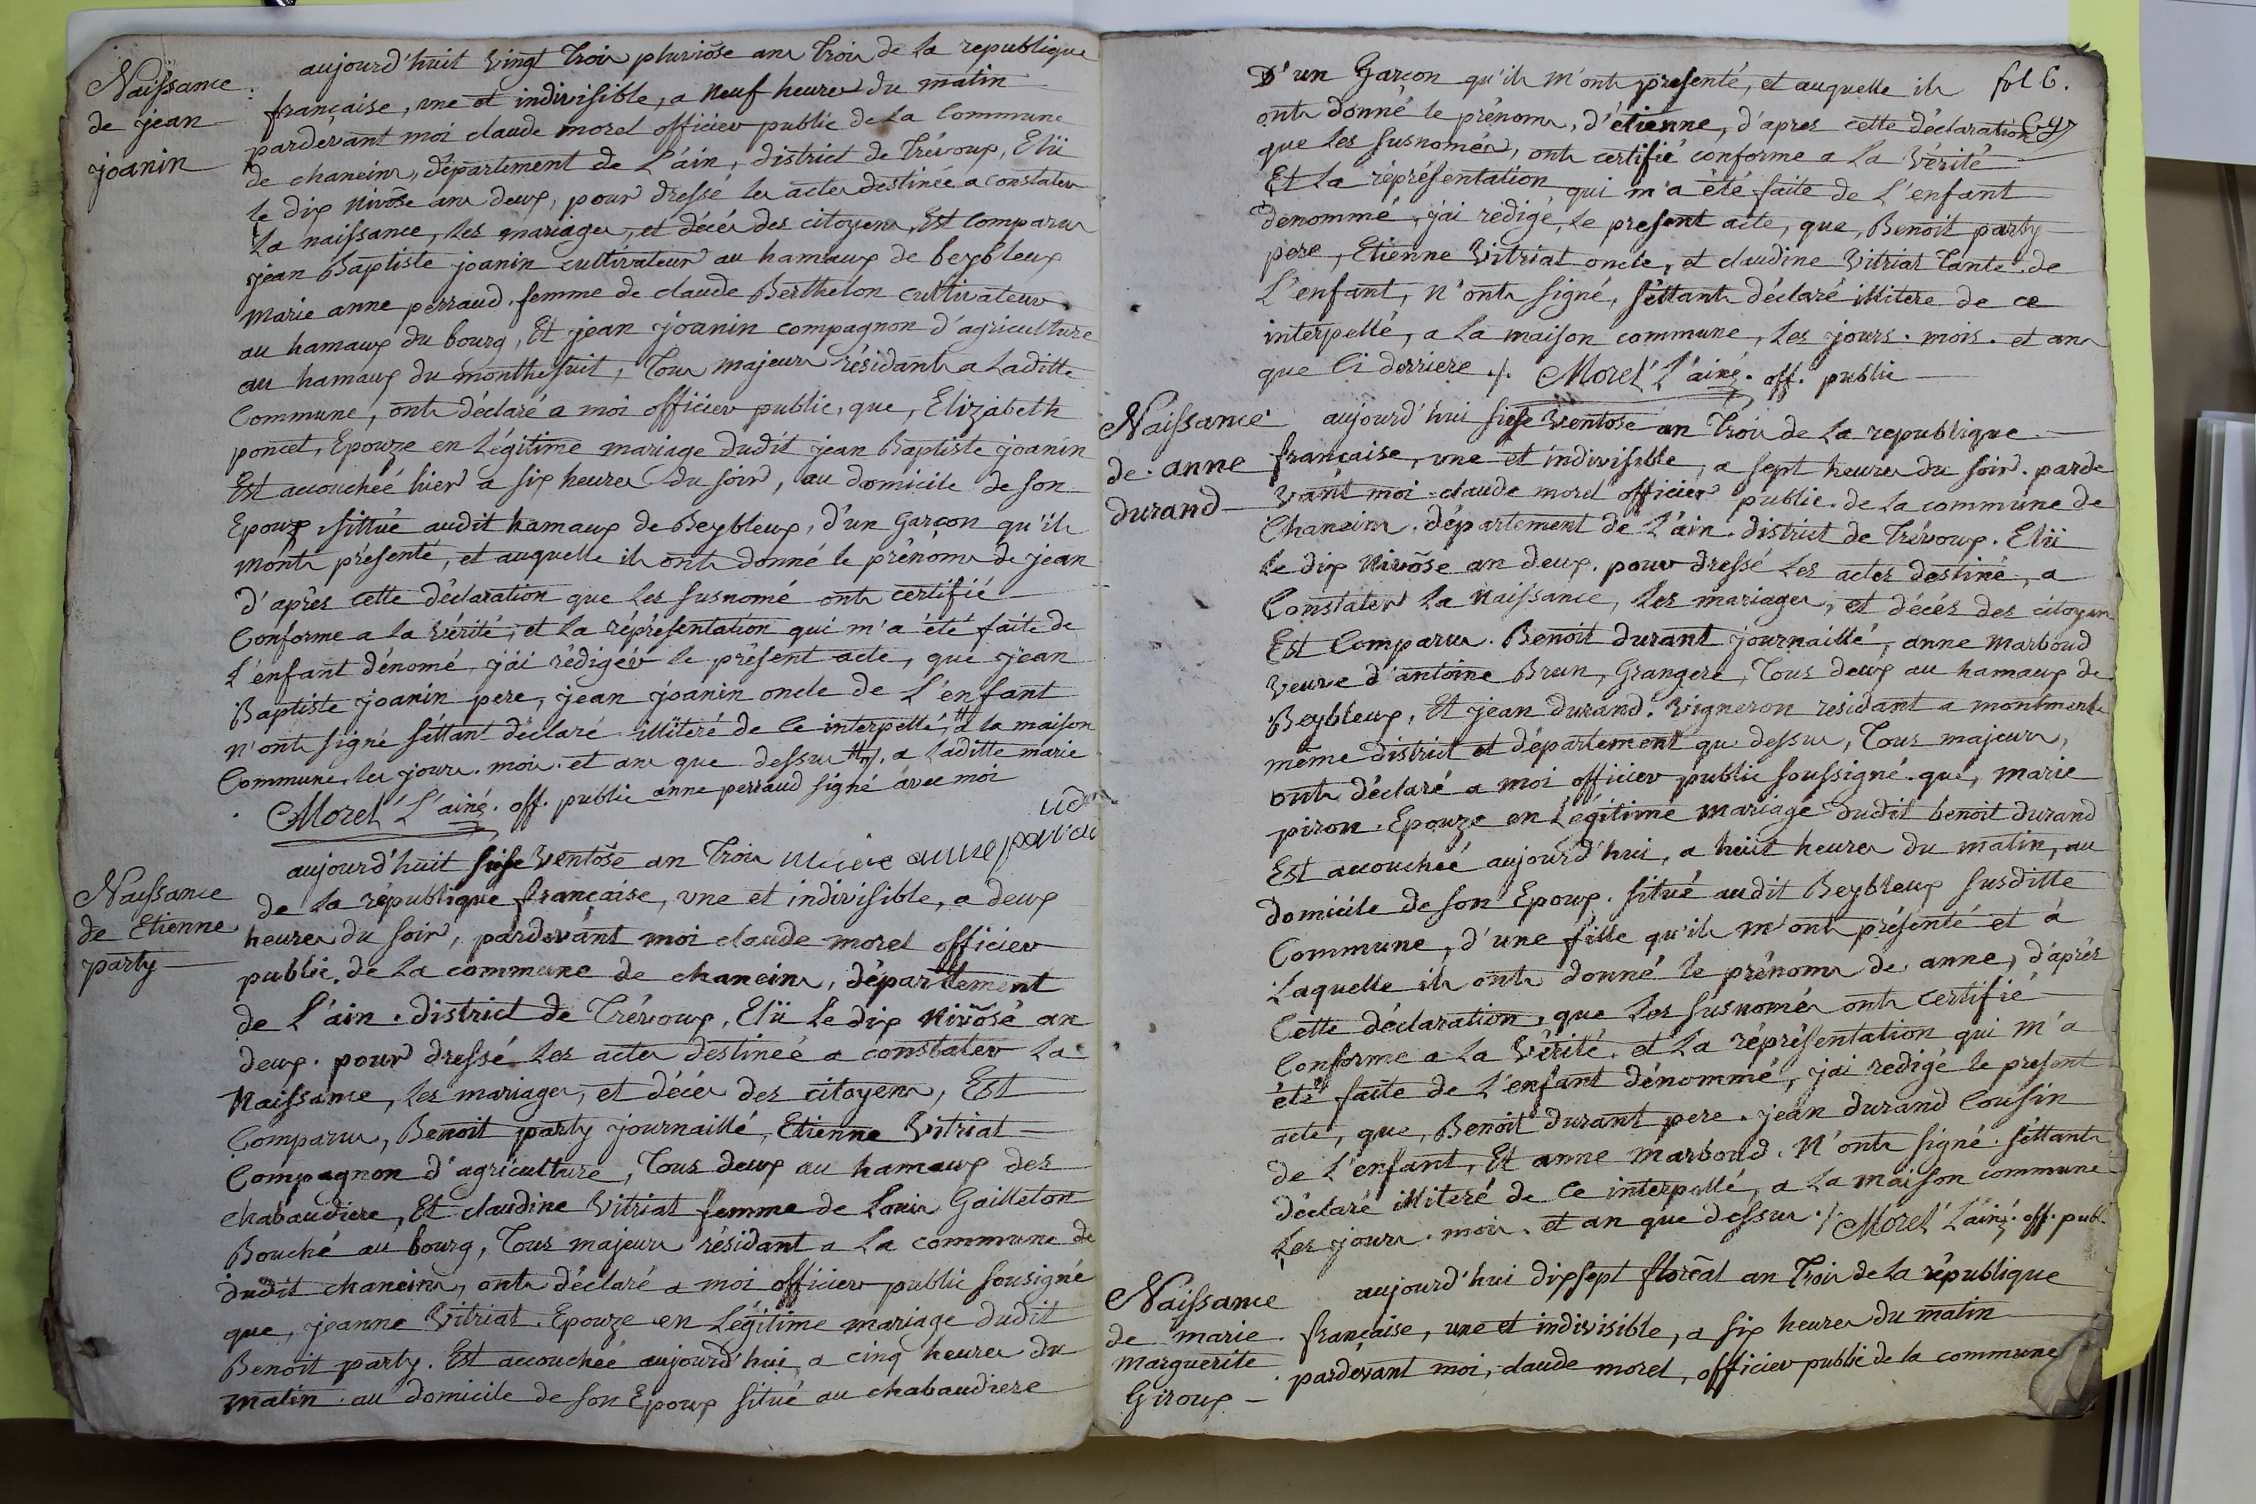 Naissance
de jean
joanin
aujourd'huit vingt Trois pluviôse ans Trois de la republique
française, une et indivisible, a neuf heures du matin
pardevant moi claude morel officier public de la Commune
de chaneins, département de L'áin, district de Trévoux, Elü
le dix nivôse ans deux, pour dressé les actes destinée a constater
La naissance, les mariages, et décès des citoyens, Est Comparus
jean Baptiste joanin cultivateur au hamaux de beybleux
marie anne perraud femme de claude Berthelon cultivateur
au hamaux du bourg, Et jean joanin compagnon d'agriculture
au hamaux du monthesuit, Tous majeurs résidants a Laditte
Commune, onts déclaré a moi officier public, que, Elizabeth
poncet, Epouze en Légitime mariage dudit jean Baptiste joanin
Est accouchéé hier a six heures du soir, au domicile de son
Epoux, sittué audit hamaux de Beybleux, d'un Garçon qu'ils
m'onts présenté, et auquelle ils onts donné le prénoms de jean
d'après cette déclaration que les susnomé onts certifié
Conforme a la vérité, et La réprésentation qui m'a été faite de
L'énfant dénomé, jái rédigéér le présent acte, que jean
Baptiste joanin pere, jean joanin oncle de L'enfant
n'onts signé séttant déclaré illitéré de ce interpellé, # a la maison
Commune, les jours. mois. et ans que dessus #/. a laditte marie
anne perraud signé avec moi
Morel L'ainé. off. public
marie anne peraud
Naissance
de Etienne
party
aujourd'huit seise ventôse an Trois
de la république française, une et indivisible, a deux
heures du soir, pardevant moi claude morel officier
public. de La commune de chaneins, départtement
de L'áin. district de Trévoux, Elü Le dix nivôsé an
deux. pour dressé Les actes destineé a constater La
Naissance, Les mariages, et décés des citoyens, Est
Comparus, Benoit party journaillé, Etienne Vitriat
Compagnon d'agriculture, Tous deux au hamaux des
chabaudiere, Et claudine Vitriat femme de Louis Gailleton
Bouché au bourg, Tous majeurs résidant a La commune de
dudit chaneins, onts déclaré a moi officier public sousigné
que, jeanne Vitriat. Epouze en Légitime mariage dudit
Benoit party. Est accouchéé aujourd'hui a cinq heures du
matin. au domicile de son Epoux situé au chabaudiere
fol 6.
D'un Garcon qu'ils m'onts présenté, et auquelle ils
onts donné le prénoms, d'étienne, d'apres cette déclaration
que les susnomés, onts certifié conforme a la vérité
Et La réprésentation qui m'a été faite de L'enfant
denommé, jai redigé, le present acte, que, Benoit party
pere, Etienne Vitriat oncle, et claudine Vitriat Tante de
L'enfant, n'onts signé, séttants déclaré illitere de ce
interpellé, a la maison commune, les jours. mois. et ans
que Ci derriere ./. Morel L'ainé. off. public
Naissance
de. anne
durand
aujourd'hui siese ventose an Trois de La republique
française, une et indivisible, a sept heures du soir. parde
vant moi claude morel officier public. de La commune de
Chaneins. département de L'áin. district de Trévoux. Elü
Le dix Nivôsé an deux. pour dressé Les actes destiné, a
Constater La Naissance, Les mariages, et décés des citoyens
Est Comparus. Benoit durant journaillé, anne marboud
veuve d'antoine Brun, Grangere, Tous deux au hamaux de
Beybleux, Et jean durand. vigneron résidant a montmerle
même district et département que dessus, Tous majeurs,
onts déclaré a moi officier public soussigné. qué, marie
piron. Epouze en Légitimé mariagé dudit benoit durand
Est accouchéé aujourd'hui, a huit heures du matin, au
domicile de son Epoux. situé audit Beybleux susditte
Commune, d'une fille qu'ils m'onts présenté et à
Laquelle ils onts donné le prénoms de anne, d'après
Cette déclaration, que Les susnomés onts certifié
Conforme a La vérité. et La réprésentation qui m'a
été faite de L'enfant dénommé, jai redigé le present
acte, que, Benoit durant pere. jean durand cousin
de L'enfant, Et anne marboud. N'onts signé. séttants
déclaré illiteré de Ce interpellé, a La maison commune
Les jours. mois. et an que dessus ./. Morel L'ainé. off. publ.
Naissance
de marie
marguerite
Giroux
aujourd'hui dixsept floréal an Trois de La république
française, une et indivisible, a six heures du matin
pardevant moi, claude morel, officier public de la commune